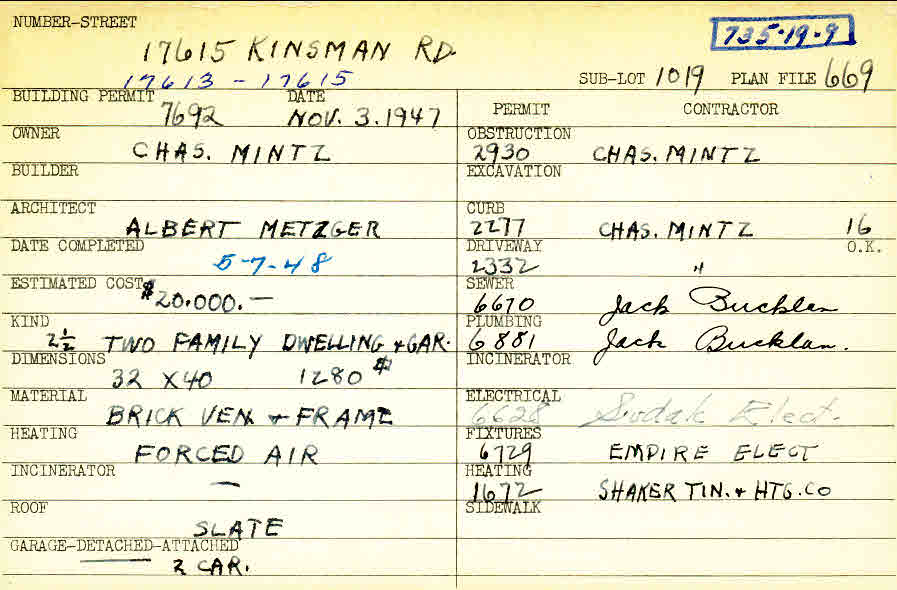 NUMBER-STREET
17615 KINSMAN RD.
735-19-9
17613 - 17615
SUB-LOT 1019 PLAN FILE 669
BUILDING PERMIT DATE
7692 NOV. 3. 1947
PERMIT CONTRACTOR
OWNER
CHAS. MINTZ
OBSTRUCTION
2930 CHAS. MINTZ
BUILDER
EXCAVATION
ARCHITECT
ALBERT METZGER
CURB
2277 CHAS. MINTZ 16
DATE COMPLETED
5-7-48
DRIVEWAY O.K.
2332 "
ESTIMATED COST
$20.000.—
SEWER
6670 Jack Bucklan
KIND
2½ TWO FAMILY DWELLING & GAR.
PLUMBING
6881 Jack Bucklan.
DIMENSIONS
32 X 40 1280 #
INCINERATOR
MATERIAL
BRICK VEN. & FRAME
ELECTRICAL
6628 Sudak Elect.
HEATING
FORCED AIR
FIXTURES
6729 EMPIRE ELECT
INCINERATOR
—
HEATING
1672 SHAKER TIN. & HTG. CO
ROOF
SLATE
SIDEWALK
GARAGE-DETACHED-ATTACHED
2 CAR.